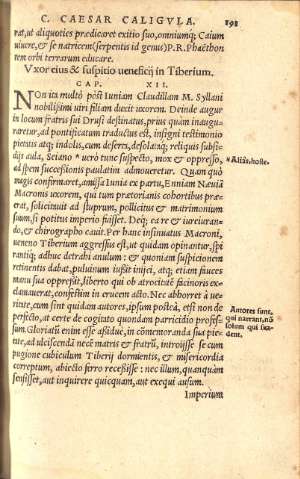 C. CAESAR CALIGVLA. 191
rat, ut aliquoties prædicaret exitio suo, omniumq; Caium
uiuere, & se natricem (serpentis id genus) P. R. Phaëthon
tem orbi terrarum educare.
Vxor eius & suspitio ueneficij in Tiberium.
CAP. XII.
NOn ita multò pòst Iuniam Claudillam M. Syllani
nobilissimi uiri filiam duxit uxorem. Deinde augur
in locum fratris sui Drusi destinatus, prius quàm inaugu=
raretur, ad pontificatum traductus est, insigni testimonio
pietatis atq; indolis, cum deserta, desolataq; reliquis subsi=
dijs aula, Seiano * uerò tunc suspecto, mox & oppresso,
ad spem successionis paulatim admoueretur. Quam quò
magis confirmaret, amissa Iunia ex partu, Enniam Næuiã
Macronis uxorem, qui tum prætorianis cohortibus præe=
rat, solicitauit ad stuprum, pollicitus & matrimonium
suum, si potitus imperio fuisset. Deq; ea re & iureiuran=
do, & chirographo cauit. Per hanc insinuatus Macroni,
ueneno Tiberium aggressus est, ut quidam opinantur, spi
rantiq; adhuc detrahi anulum: & quoniam suspicionem
retinentis dabat, puluinum iußit inijci, atq; etiam fauces
manu sua oppreßit, liberto qui ob atrocitatẽ facinoris ex=
clamauerat, confestim in crucem acto. Nec abhorret à ue=
ritate, cum sint quidam autores, ipsum posteà, etsi non de
perfecto, at certe de cogitato quondam parricidio profes=
sum. Gloriatũ enim esse aßiduè, in cõmemoranda sua pie=
tate, ad ulciscendã necẽ matris & fratrũ, introisse se cum
pugione cubiculum Tiberij dormientis, & misericordia
correptum, abiecto ferro recessisse: nec illum, quanquàm
sensisset, aut inquirere quicquam, aut exequi ausum.
Imperium
*Aliâs, hoste.
Autores sunt,
qui narrant, nõ
solum qui sua=
dent.